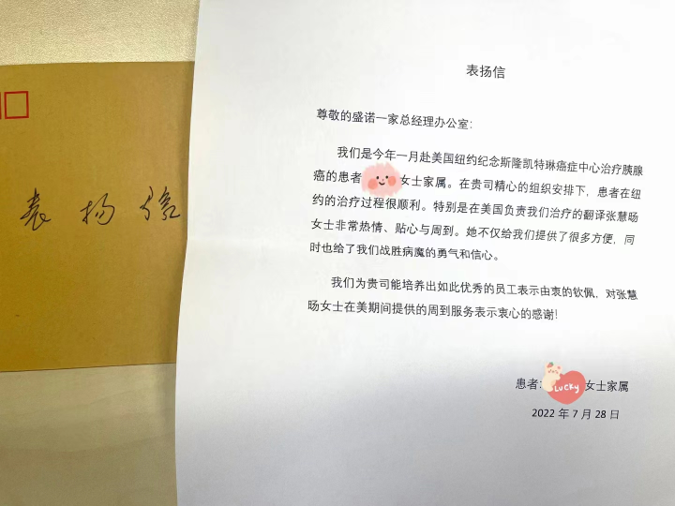 表扬信
表扬信
尊敬的盛诺一家总经理办公室：
我们是今年一月赴美国纽约纪念斯隆凯特琳癌症中心治疗胰腺
癌的患者女士家属。在贵司精心的组织安排下，患者在纽
约的治疗过程很顺利。特别是在美国负责我们治疗的翻译张慧旸
女士非常热情、贴心与周到。她不仅给我们提供了很多方便，同
时也给了我们战胜病魔的勇气和信心。
我们为贵司能培养出如此优秀的员工表示由衷的钦佩，对张慧
旸女士在美期间提供的周到服务表示衷心的感谢！
患者：LUCKY女士家属
2022 年 7 月 28 日